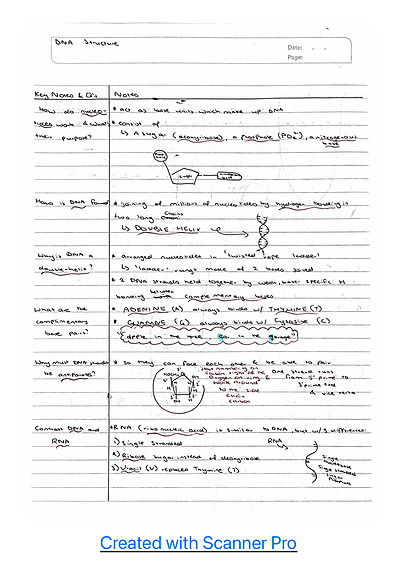 DNA Structure
Date:
Page:
Key Notes & Q's
Notes
How do nucleo-
tides work & what's
their purpose?
* act as base units which make up DNA
* consist of
↳ A sugar (deoxyribose), a phosphate (PO₄³⁻), a nitrogenous
base
sugar
How is DNA formed
* joining of millions of nucleotides by hydrogen bonding in
two long chains
↳ DOUBLE HELIX
Why is DNA a
double-helix?
* arranged nucleotides in 'twisted rope ladder'
↳ 'ladder' rungs made of 2 bases joined
* 2 DNA strands held together by weak, base-specific H-
bonding between complementary bases
What are the
complimentary
base pairs?
* ADENINE (A) always binds w/ THYMINE (T)
* GUANINE (G) always binds w/ Cytosine (C)
"apple in the tree, car in the garage"
Why must DNA strands
be antiparallel?
* so they can face each other & be able to pair
one strand runs
from 5' prime to
3' prime end
& vice versa
Contrast DNA and
RNA
* RNA (ribonucleic acid) is similar to DNA, but w/ 3 differences:
1) Single stranded
2) Ribose sugar instead of deoxyribose
3) Uracil (U) replaces Thymine (T).
RNA
Created with Scanner Pro